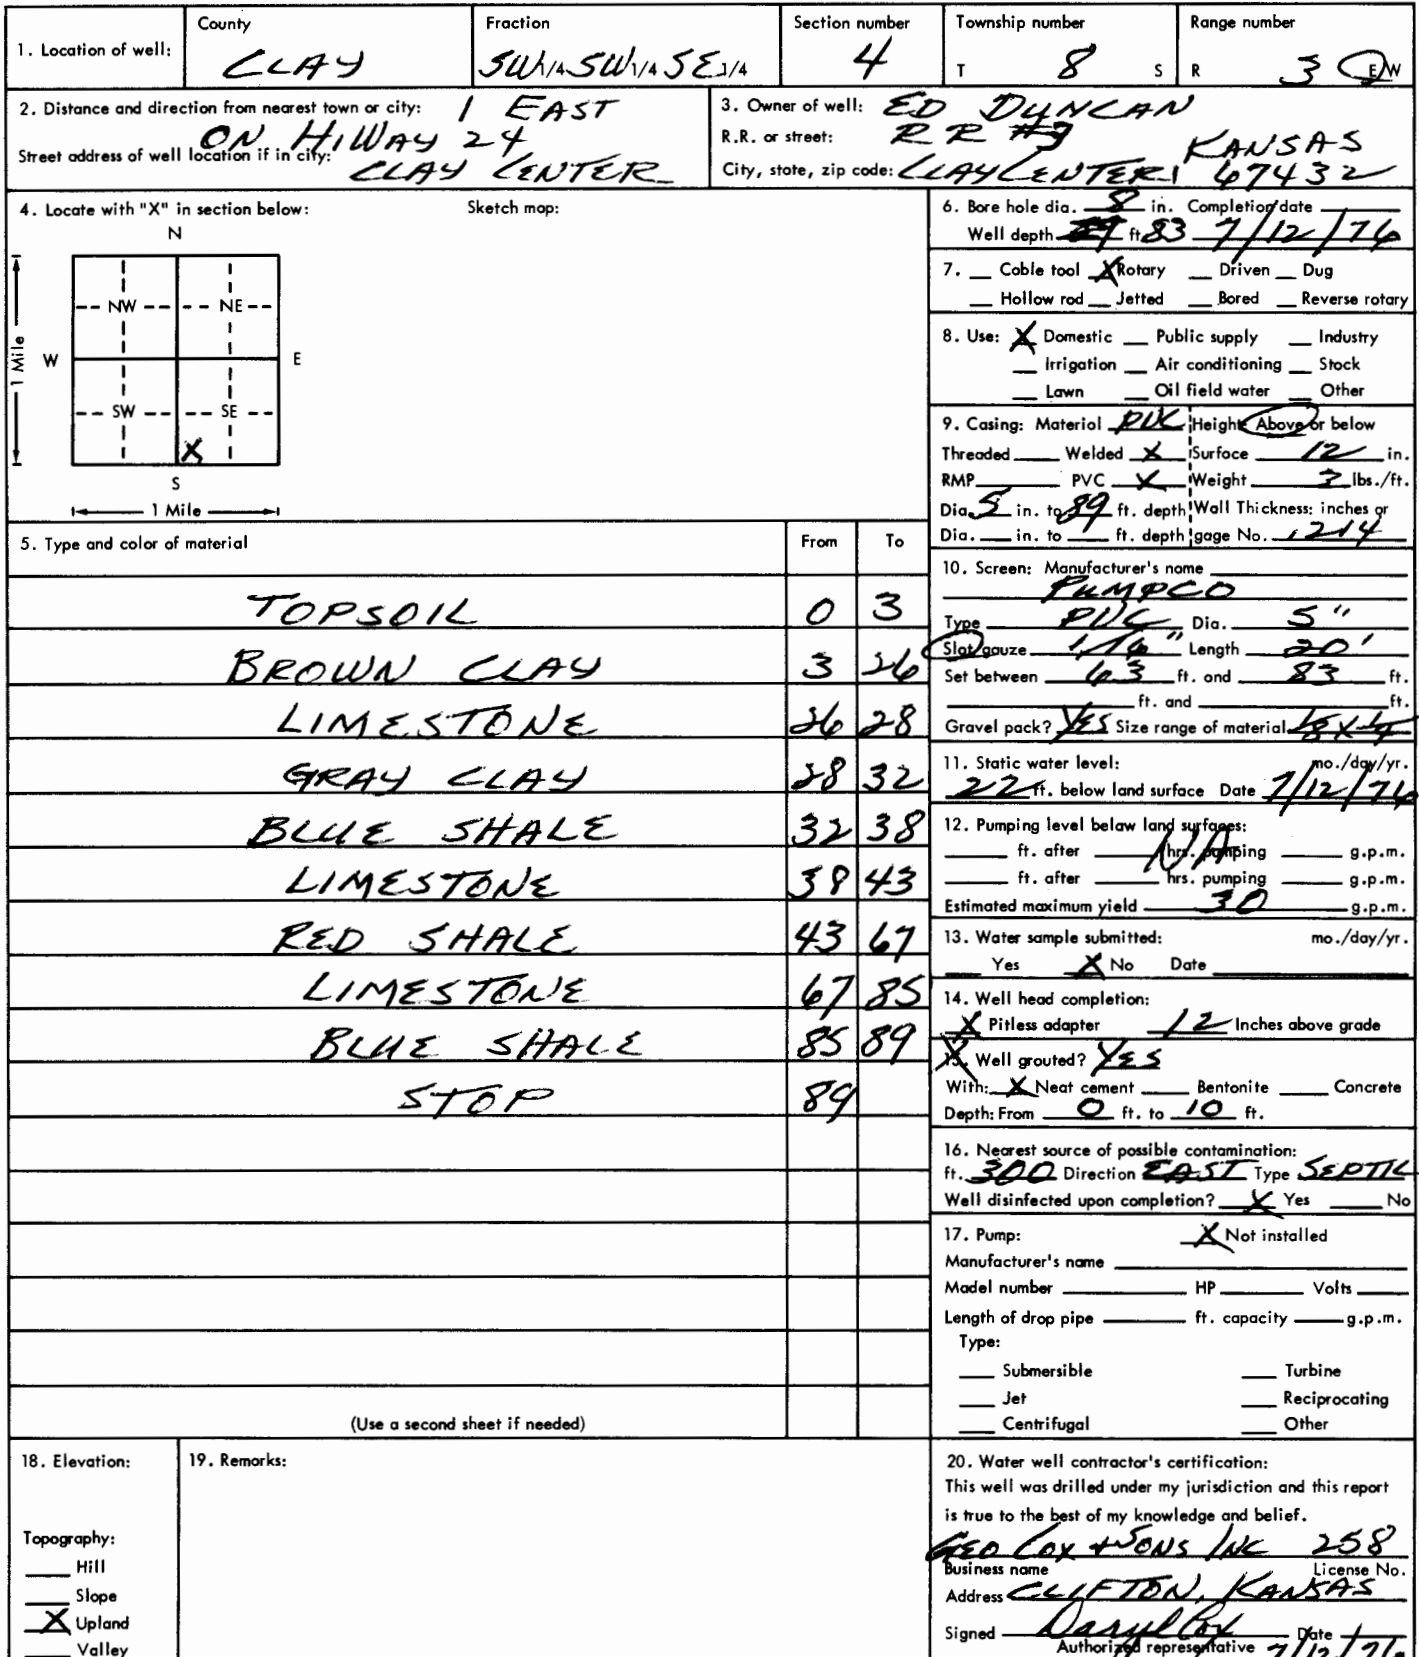 County Fraction Section number Township number Range number
1. Location of well: CLAY SW1/4 SW1/4 SE1/4 4 T 8 S R 3 E/W
2. Distance and direction from nearest town or city: 1 EAST
ON HIWAY 24
Street address of well location if in city:
CLAY CENTER
3. Owner of well: ED DUNCAN
R.R. or street: RR #3
City, state, zip code: CLAY CENTER, KANSAS 67432
4. Locate with "X" in section below: Sketch map:
N
NW NE
W E
1 Mile
SW SE
X
S
1 Mile
5. Type and color of material From To
TOPSOIL 0 3
BROWN CLAY 3 26
LIMESTONE 26 28
GRAY CLAY 28 32
BLUE SHALE 32 38
LIMESTONE 38 43
RED SHALE 43 67
LIMESTONE 67 85
BLUE SHALE 85 89
STOP 89
(Use a second sheet if needed)
6. Bore hole dia. 8 in. Completion date
Well depth ft. 83 7/12/76
7. Cable tool X Rotary Driven Dug
Hollow rod Jetted Bored Reverse rotary
8. Use: X Domestic Public supply Industry
Irrigation Air conditioning Stock
Lawn Oil field water Other
9. Casing: Material PVC Height: Above or below
Threaded Welded X Surface 12 in.
RMP PVC X Weight 3 lbs./ft.
Dia. 5 in. to 89 ft. depth Wall Thickness: inches or
Dia. in. to ft. depth gage No. .214
10. Screen: Manufacturer's name
PUMPCO
Type PVC Dia. 5"
Slot/gauze 1/16" Length 20'
Set between 63 ft. and 83 ft.
ft. and ft.
Gravel pack? YES Size range of material 1/8 X 1/4
11. Static water level: mo./day/yr.
22 ft. below land surface Date 7/12/76
12. Pumping level below land surfaces:
N/A
ft. after hrs. pumping g.p.m.
ft. after hrs. pumping g.p.m.
Estimated maximum yield 30 g.p.m.
13. Water sample submitted: mo./day/yr.
Yes X No Date
14. Well head completion:
X Pitless adapter 12 Inches above grade
15. Well grouted? YES
With: X Neat cement Bentonite Concrete
Depth: From 0 ft. to 10 ft.
16. Nearest source of possible contamination:
ft. 300 Direction EAST Type SEPTIC
Well disinfected upon completion? X Yes No
17. Pump: X Not installed
Manufacturer's name
Model number HP Volts
Length of drop pipe ft. capacity g.p.m.
Type:
Submersible Turbine
Jet Reciprocating
Centrifugal Other
18. Elevation:
Topography:
Hill
Slope
X Upland
Valley
19. Remarks:
20. Water well contractor's certification:
This well was drilled under my jurisdiction and this report
is true to the best of my knowledge and belief.
GEO COX & SONS INC 258
Business name License No.
Address CLIFTON, KANSAS
Signed Daryl Cox Date
Authorized representative 7/12/76